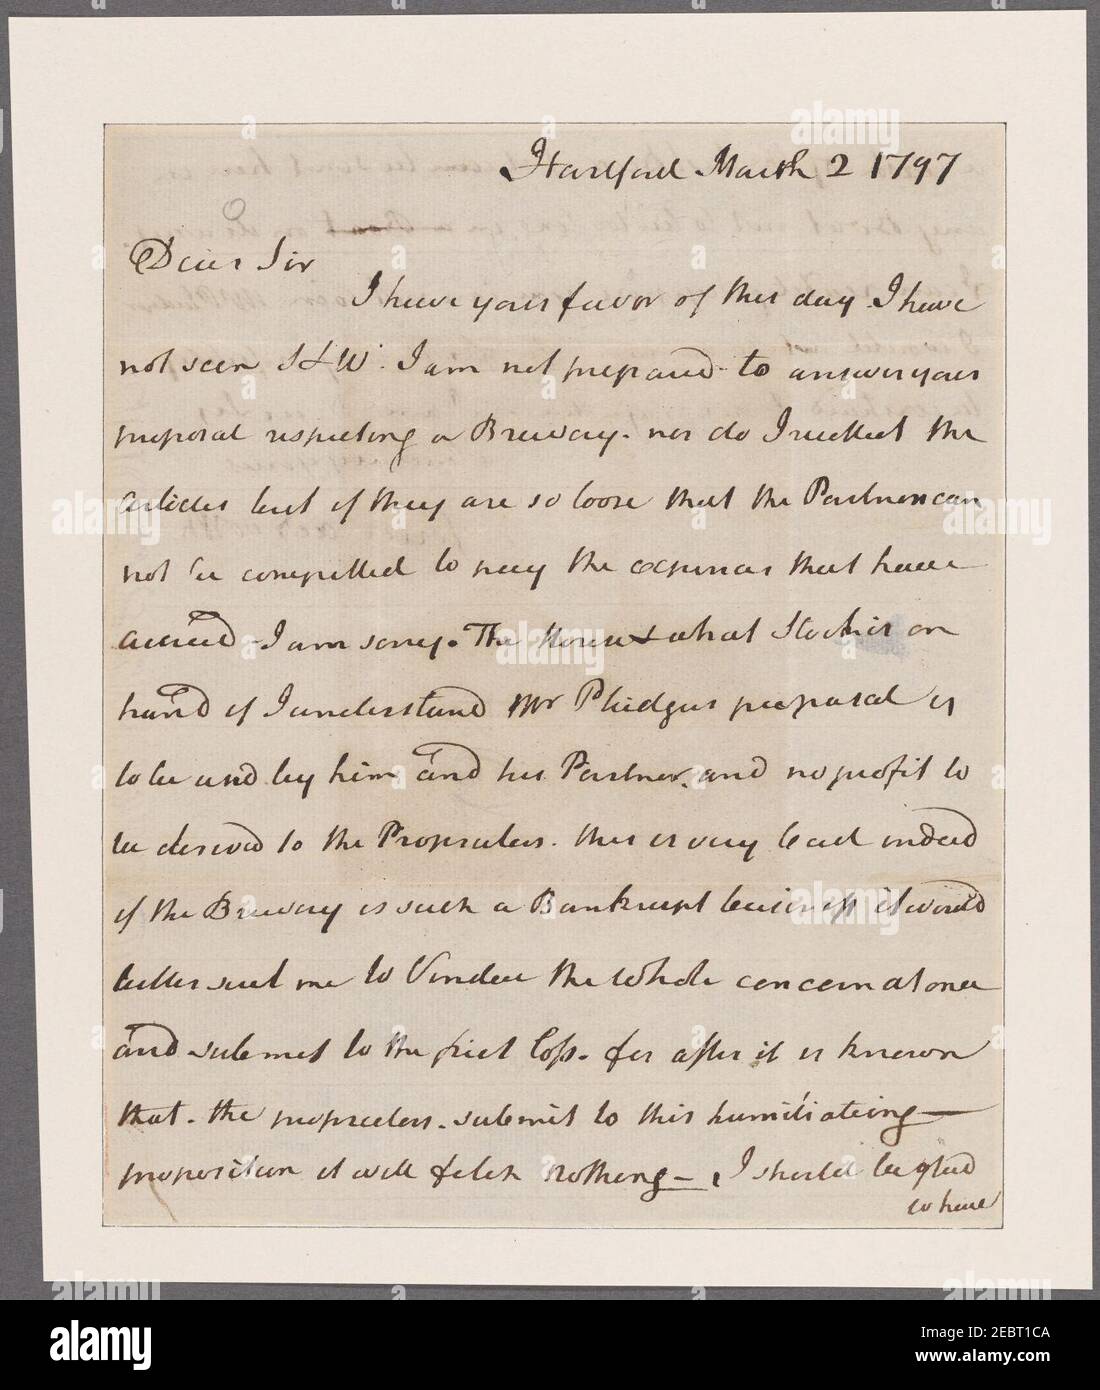 Hartford March 2 1797
Dear Sir
I have your favor of this day. I have
not seen S & W. I am not prepared to answer your
proposal respecting a Brewery. nor do I recollect the
articles but if they are so loose that the Partners can
not be compelled to pay the expences that have
accrued - I am sorry. The House & what Stock is on
hand if I understand Mr Phidgers proposal is
to be used by him and his Partner. and no profit to
be derived to the Proprietors. this is very bad indeed
if the Brewery is such a Bankrupt business it would
better suit me to Vendue the whole concern at once
and submit to the first Loss. for after it is known
that. the proprietors. submit to this humiliating -
proposition it will fetch nothing - I should be glad
to have
alamy
Image ID: 2EBT1CA
www.alamy.com